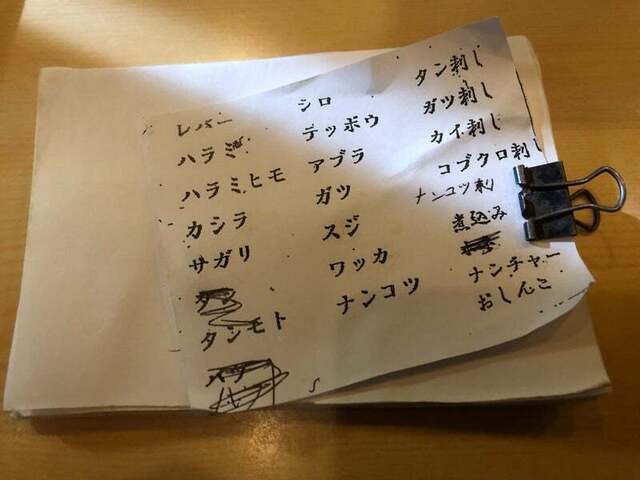 レバー
ハラミ
ハラミヒモ
カシラ
サガリ
タンモト
シロ
テッポウ
アブラ
ガツ
スジ
ワッカ
ナンコツ
タン刺し
ガツ刺し
カイ刺し
コブクロ刺し
ナンコツ刺
煮込み
ナンチャー
おしんこ